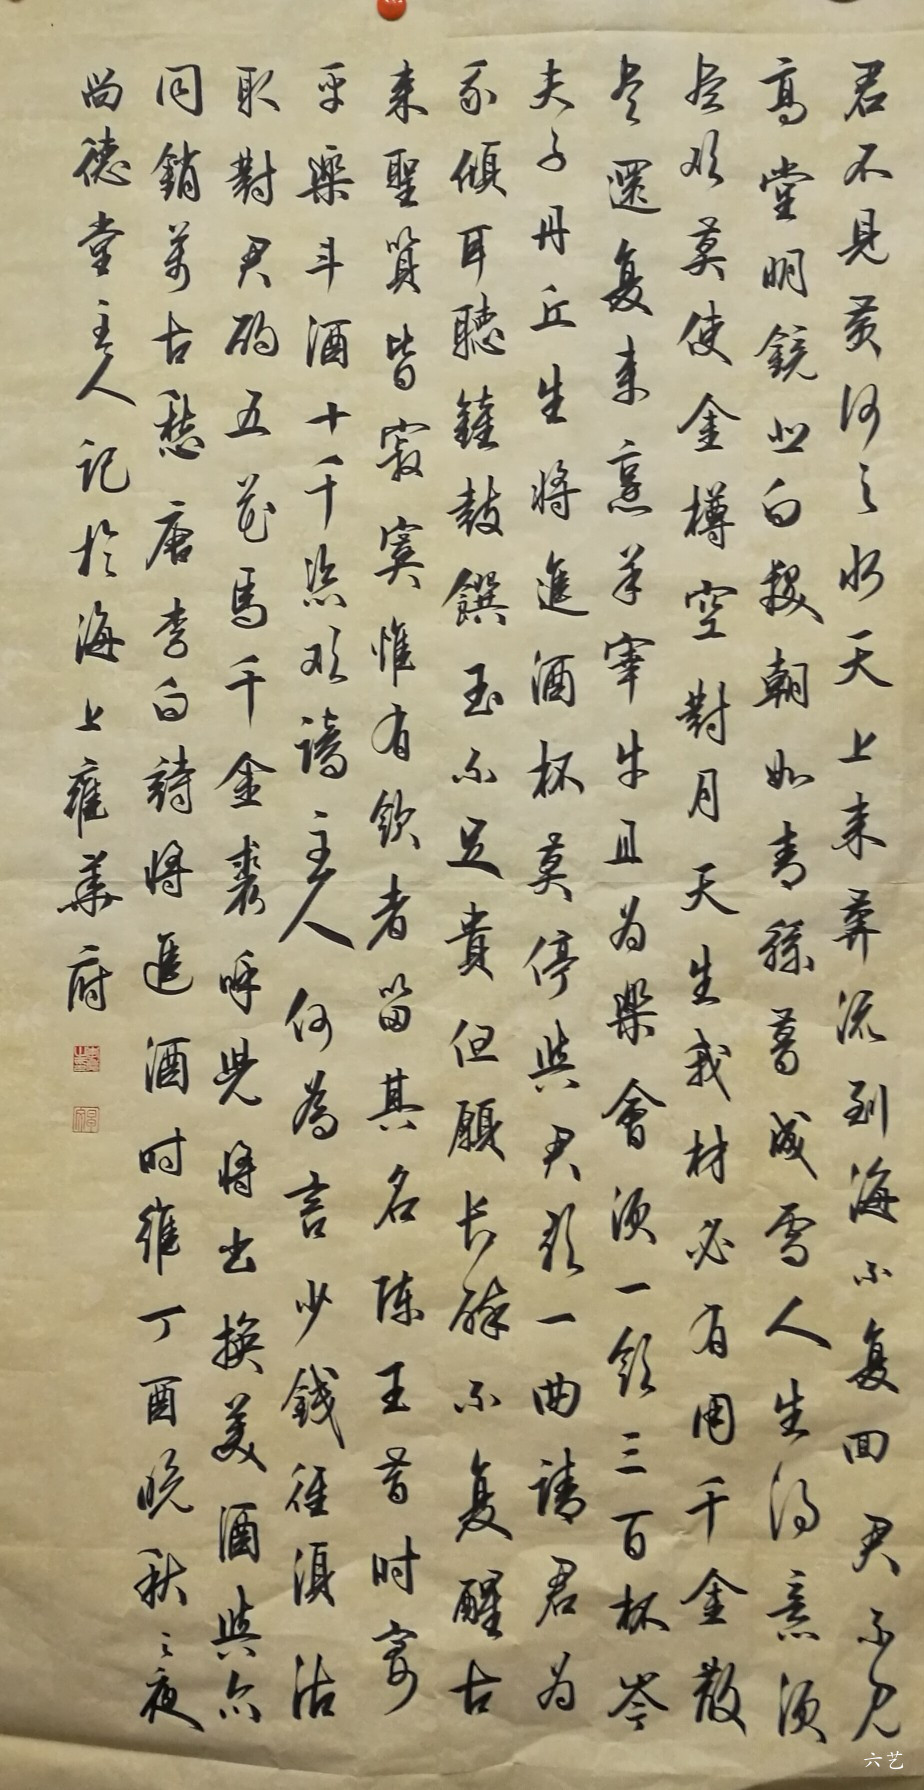 君不見黃河之水天上来奔流到海不复回君不見
高堂明鏡悲白髮朝如青絲暮成雪人生得意須
尽欢莫使金樽空對月天生我材必有用千金散
尽還复来烹羊宰牛且为樂會須一飲三百杯岑
夫子丹丘生將進酒杯莫停與君歌一曲請君为
我傾耳聽鐘鼓饌玉不足貴但願长醉不复醒古
来聖賢皆寂寞惟有飲者留其名陈王昔时宴
平樂斗酒十千恣欢謔主人何為言少錢徑須沽
取對君酌五花馬千金裘呼児將出换美酒與尔
同銷萬古愁唐李白詩將進酒时維丁酉晚秋之夜
尚德堂主人記於海上雍華府
六艺